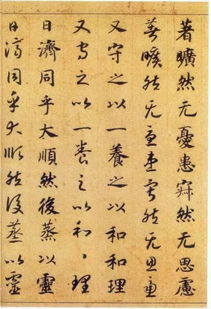 著曠然无憂患寂然无思慮
著曠然无憂患寂然无思慮
又守之以一養之以和和理
又守之以一養之以和々理
日濟同乎大順然後蒸以靈
日濟同乎大順然後蒸以靈